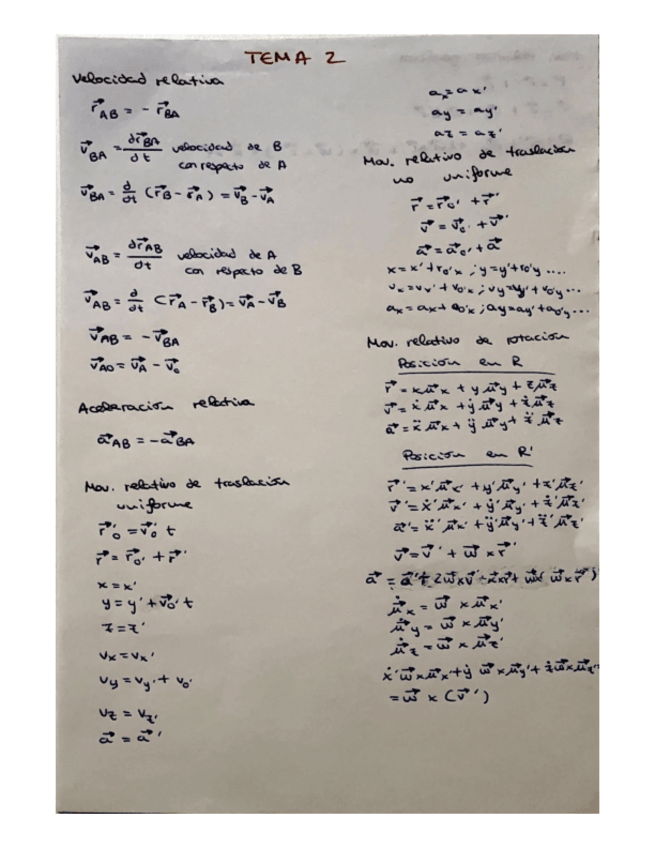 TEMA 2
Velocidad relativa
r⃗AB = - r⃗BA
v⃗BA = dr⃗BA/dt velocidad de B
con respecto de A
v⃗BA = d/dt (r⃗B - r⃗A) = v⃗B - v⃗A
v⃗AB = dr⃗AB/dt velocidad de A
con respecto de B
v⃗AB = d/dt (r⃗A - r⃗B) = v⃗A - v⃗B
v⃗AB = - v⃗BA
v⃗AO = v⃗A - v⃗o
Aceleración relativa
a⃗AB = - a⃗BA
Mov. relativo de traslación
uniforme
r⃗'o = v⃗o' t
r⃗ = r⃗o' + r⃗'
x = x'
y = y' + v⃗o' t
z = z'
vx = vx'
vy = vy' + vo'
vz = vz'
a⃗ = a⃗'
ax = ax'
ay = ay'
az = az'
Mov. relativo de traslación
no uniforme
r⃗ = r⃗o' + r⃗'
v⃗ = v⃗o' + v⃗'
a⃗ = a⃗o' + a⃗
x = x' + ro'x ; y = y' + ro'y ....
vx = vx' + vo'x ; vy = vy' + vo'y ...
ax = ax + ao'x ; ay = ay' + ao'y ...
Mov. relativo de rotación
Posición en R
r⃗ = x μ⃗x + y μ⃗y + z μ⃗z
v⃗ = ẋ μ⃗x + ẏ μ⃗y + ż μ⃗z
a⃗ = ẍ μ⃗x + ÿ μ⃗y + z̈ μ⃗z
Posición en R'
r⃗' = x' μ⃗x' + y' μ⃗y' + z' μ⃗z'
v⃗' = ẋ' μ⃗x' + ẏ' μ⃗y' + ż' μ⃗z'
a⃗' = ẍ' μ⃗x' + ÿ' μ⃗y' + z̈' μ⃗z'
v⃗ = v⃗' + ω⃗ x r⃗'
a⃗ = a⃗' + 2ω⃗ x v⃗' + α⃗ x r⃗' + ω⃗ x (ω⃗ x r⃗')
μ⃗̇x = ω⃗ x μ⃗x'
μ⃗̇y = ω⃗ x μ⃗y'
μ⃗̇z = ω⃗ x μ⃗z'
ẋ' ω⃗ x μ⃗x' + ẏ ω⃗ x μ⃗y' + ż ω⃗ x μ⃗z' =
= ω⃗ x (v⃗')